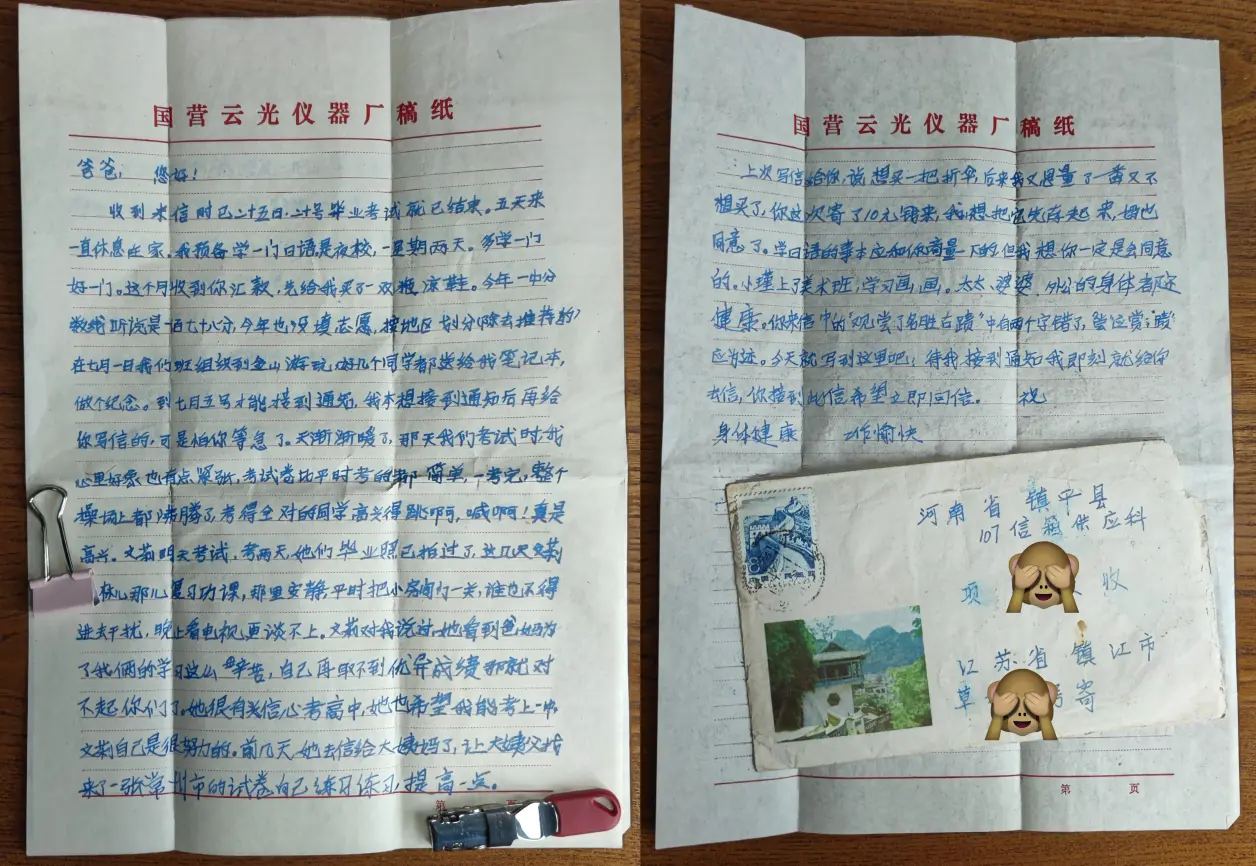 国营云光仪器厂稿纸
爸爸，您好！
收到来信时已二十五日，二十号毕业考试就已结束。五天来
一直休息在家。我预备学一门日语，是夜校，一星期两天。多学一门
好一门。这个月收到你汇款，先给我买了一双板凉鞋。今年一中分
数线听说是一百七十八分，今年也没填志愿，按地区划分（除去推荐的）
在七月一日我们班组织到金山游玩，好几个同学都送给我笔记本，
做个纪念。到七月五号才能接到通知，我本想接到通知后再给
你写信的，可是怕你等急了。天渐渐暖了，那天我们考试时，我
心里好象也有点紧张，考试卷比平时考的都简单，一考完，整个
操场上都沸腾了，考得全对的同学高兴得跳啊，喊啊！真是
高兴。文莉明天考试，考两天，她们毕业照已拍过了，这几天文莉
在 儿那儿复习功课，那里安静，平时把小房间门一关，谁也不得
进去干扰，晚上看电视更谈不上。文莉对我说过，她看到爸妈为
了我俩的学习这么辛苦，自己再取不到优异成绩那就对
不起你们了。她很有信心考高中，她也希望我能考上一中，
文莉自己是很努力的。前几天，她去信给大姨妈了，让大姨父找
来了一张常州市的试卷自己练习练习，提高一点。
第 页
国营云光仪器厂稿纸
上次写信给你，说想买一把折伞，后来我又思量了一番又不
想买了，你这次寄了10元钱来，我想把它先存起来，妈也
同意了。学日语的事本应和你商量一下的，但我想你一定是会同意
的。小瑾上了美术班，学习画画。太太、婆婆、外公的身体都还
健康。你来信中的“观尝了名胜古蹟”中有两个字错了，尝应赏；蹟
应为迹。今天就写到这里吧！待我接到通知我即刻就给你
去信，你接到此信希望立即回信。 祝
身体健康 工作愉快
河南省镇平县
107信箱供应科
项 收
江苏省镇江市
草 寄
第 页